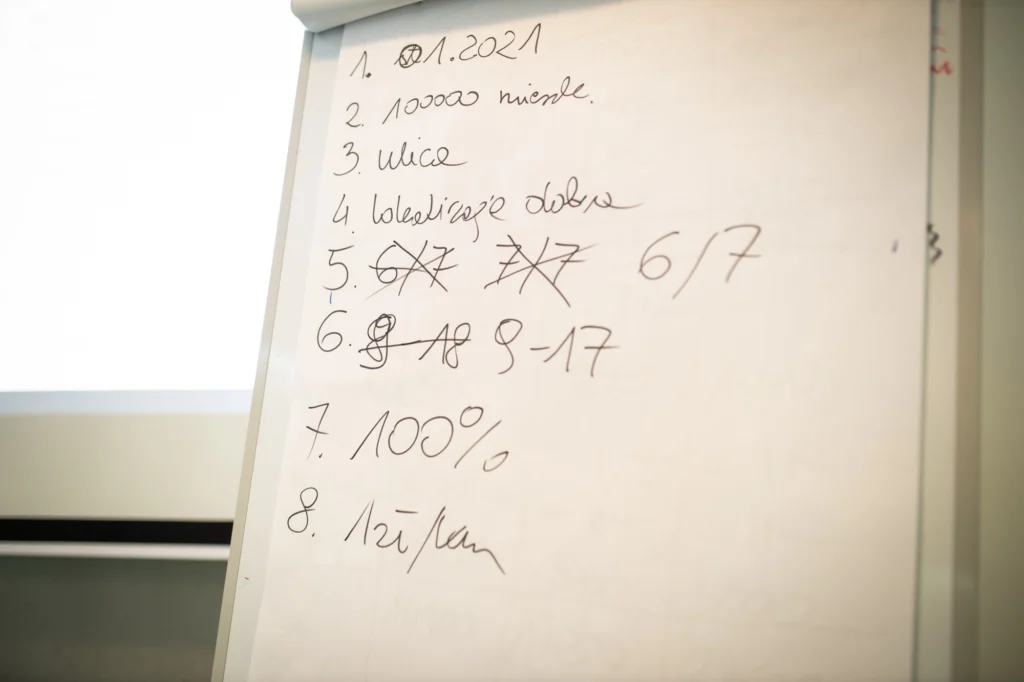 1. 01.2021
2. 100000 mieszk.
3. ulica
4. lokalizacje dobra
5. 6/7 7/7 6/7
6. 9-18 9-17
7. 100%
8. 1zł/km